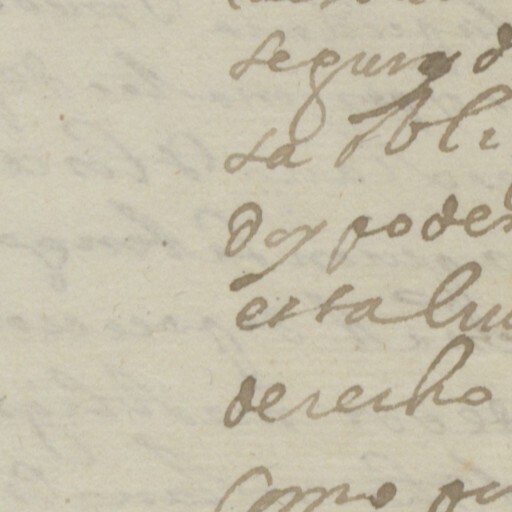 segura d
sa obli
Doy poder
esta lu
derecho
Como pu